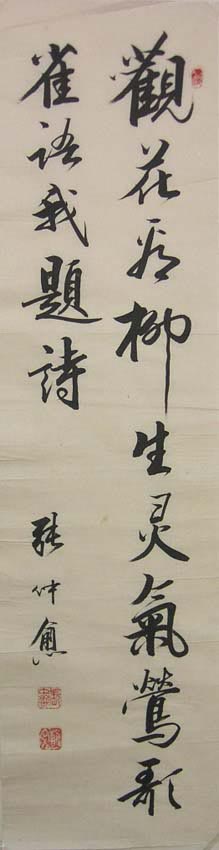 觀花看柳生灵氣鶯歌
雀語我題詩
張仲愈